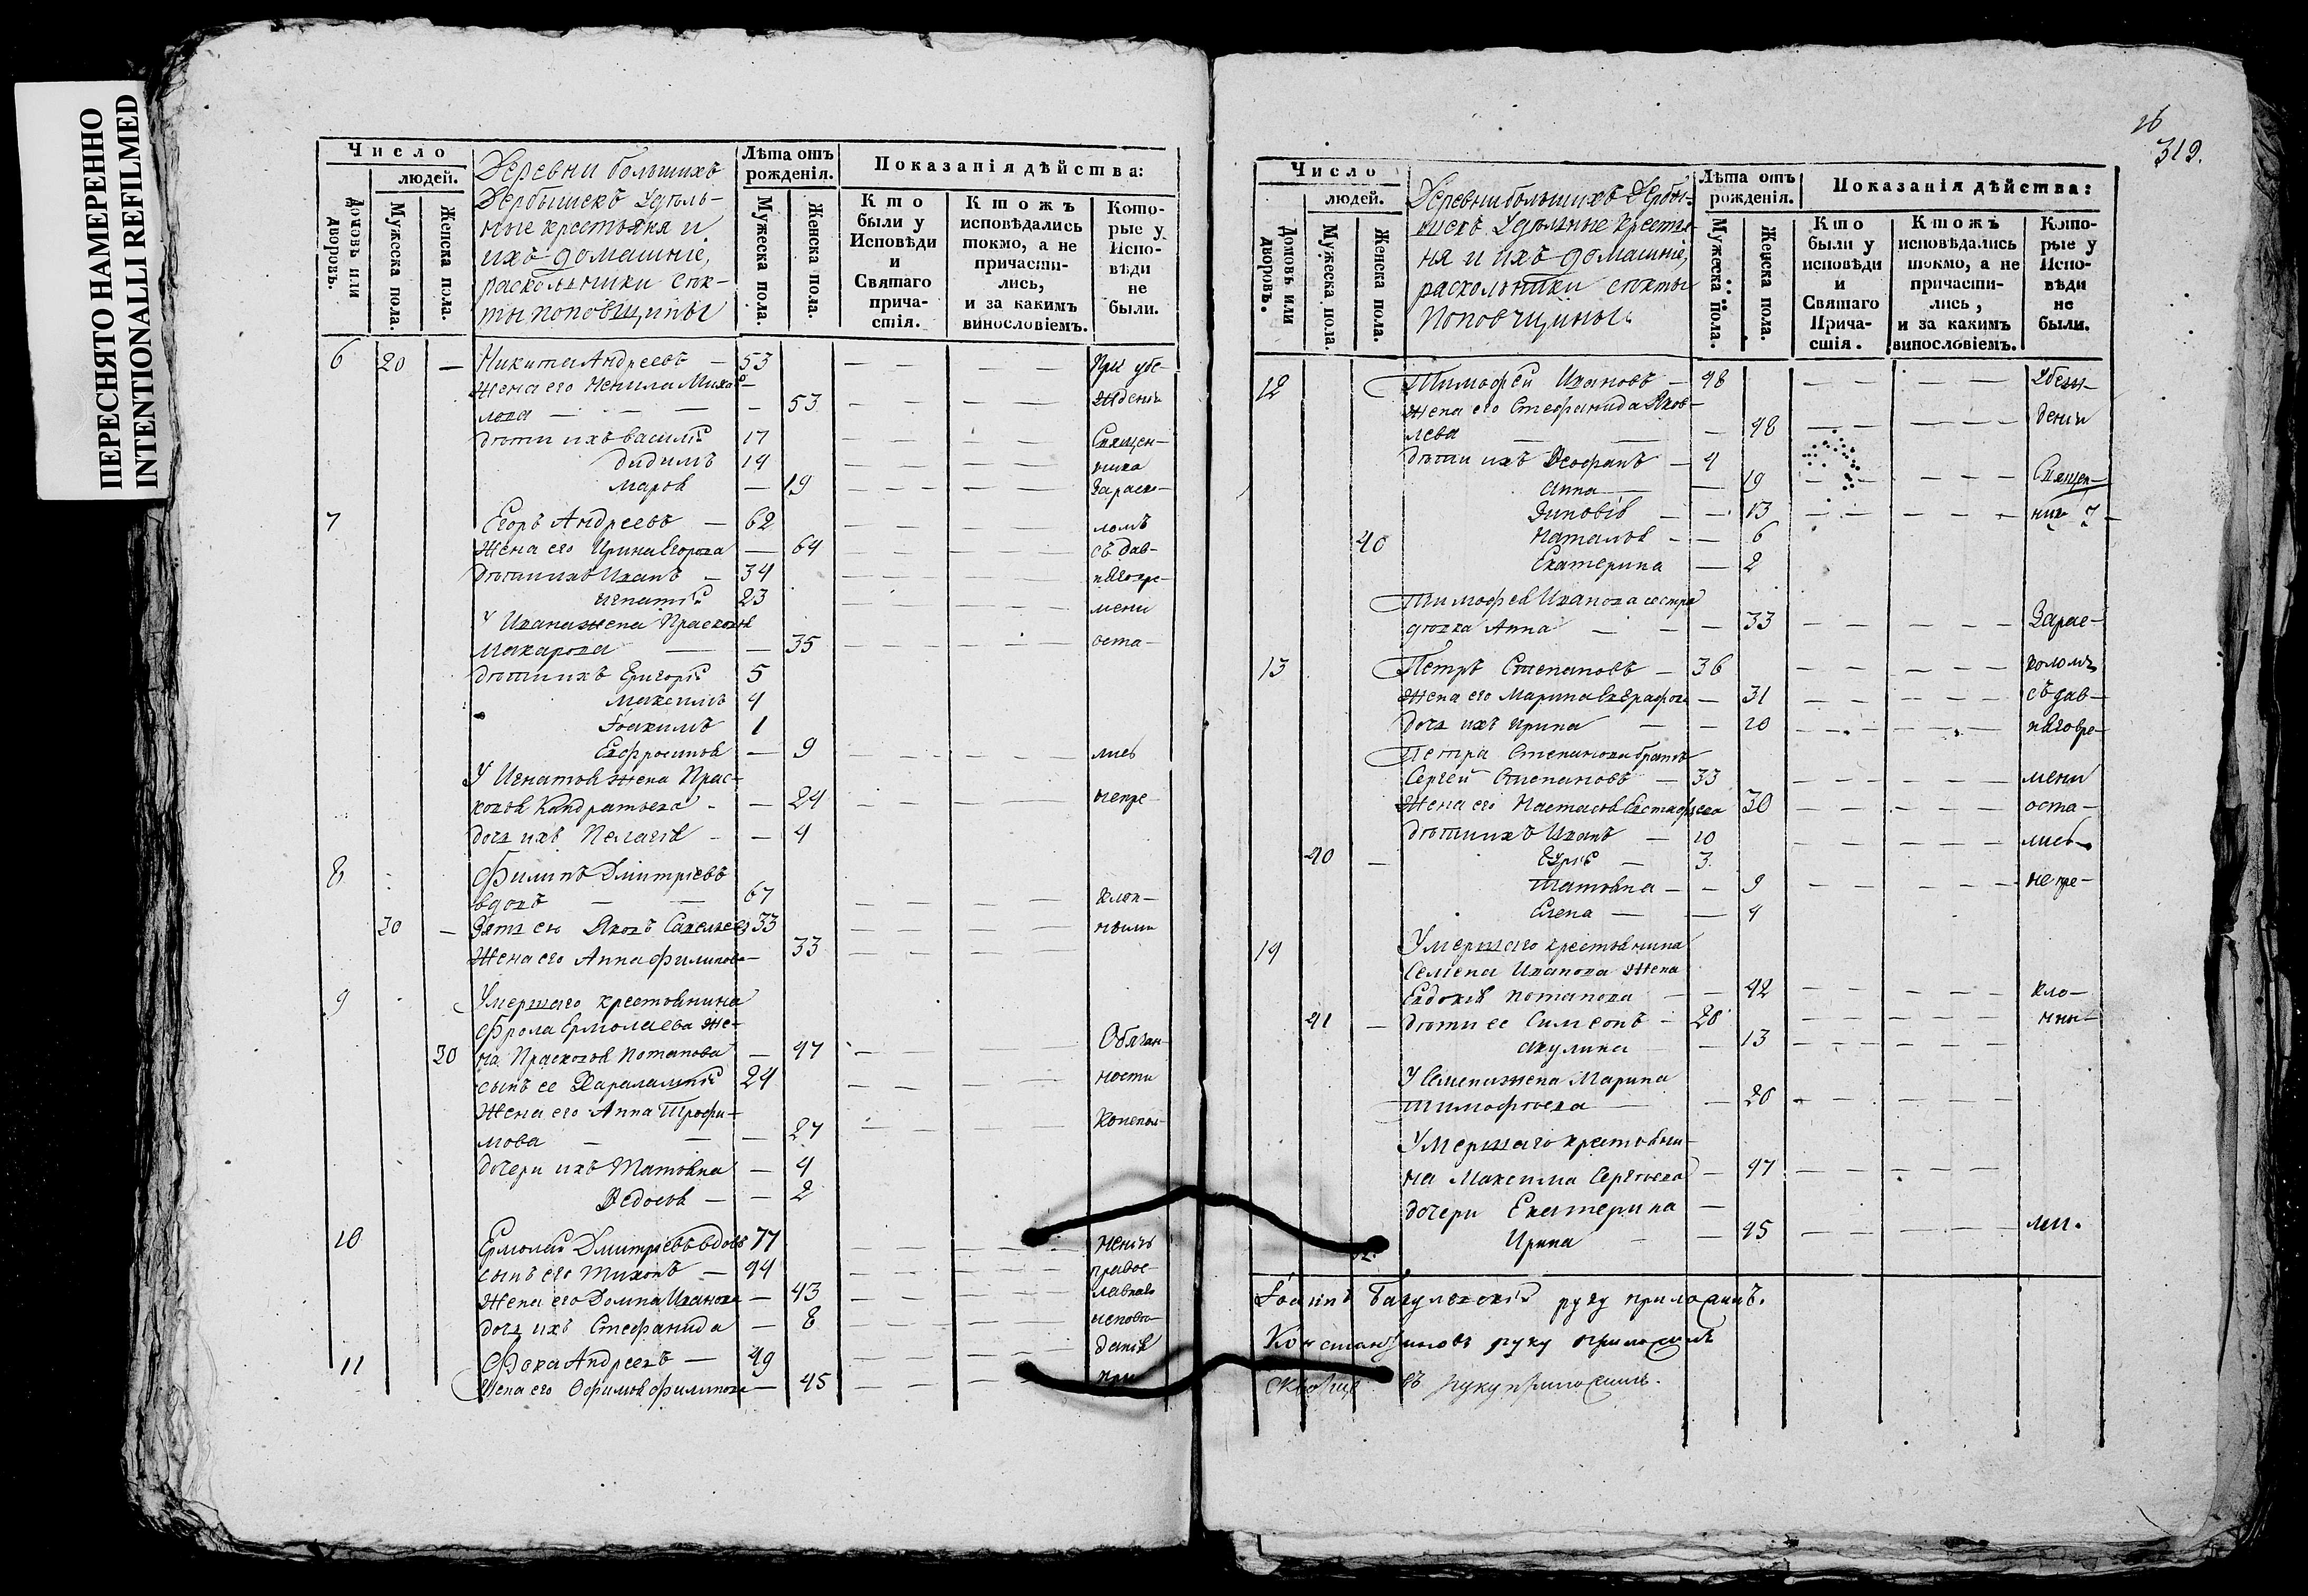 ПЕРЕСНЯТО НАМЕРЕННО
INTENTIONALLI REFILMED
Число
людей.
Домовъ или дворовъ.
Мужеска пола.
Женска пола.
Деревни большихъ
Дербышекъ Удѣль-
ные крестьяня и
ихъ домашніе,
раскольники сек-
ты поповщины
Лѣта отъ рожденія.
Мужеска пола.
Женска пола.
Показанія дѣйства:
Кто были у Исповѣди и Святаго прича- стія.
Ктожъ исповѣдались токмо, а не причасти- лись, и за какимъ винословіемъ.
Кото- рые у Испо- вѣди не были.
6 20 — Никита Андреевъ — 53 — — — При убѣ-
жена его Ненила Михай-
лова — — — 53 — — — ждении
дѣти ихъ Василій 17 — — — Священ-
Дидимъ 14 — — — ника
Марѳа — 19 — — — Зараско-
7 Егоръ Андреевъ — 62 — — — ломъ
жена его Ирина Егорова — 64 — — — съ дав-
дѣти ихъ Иванъ — 34 — — — няговре-
Игнатій 23 — — — мени
У Ивана жена Прасковья
Макарова — — 35 — — — оста-
дѣти ихъ Григорій 5
Максимъ 4
Іоакимъ 1
Евфросинья — 9 — — — лись
У Игнатья жена Прас-
ковья Кондратьева — — 24 — — — непре-
дочь ихъ Пелагія — — 4
8 Филипъ Дмитріевъ
вдовъ — — 67 — — — клон-
30 — Зять его Яковъ Савельевъ 33 — — — ными
жена его Анна Филипова — 33 — — —
9 Умершаго крестьянина
Фрола Ермолаева же-
30 на Прасковья Потапова — 47 — — —
сынъ ее Харалампій 24 — — — ности
жена его Анна Трофи-
мова — — — 27 — — —
дочери ихъ Татьяна — 4
Ѳедосья — — 2
10 Ермолай Дмитріевъ вдовъ 77 — — —
сынъ его Тихонъ — 44 — — — правос-
жена его Домна Иванова — 43 — — — лавнаго
дочь ихъ Стефанида — 8 исповѣ-
11 Фока Андреевъ — 49 — — — данія
жена его Ефимья Филипова — 45 — — — при
26
319.
Число
людей.
Домовъ или дворовъ.
Мужеска пола.
Женска пола.
Деревни большихъ Дербы-
шекъ Удѣльные крестья-
ня и ихъ домашніе,
раскольники секты
Поповчщины
Лѣта отъ рожденія.
Мужеска пола.
Женска пола.
Показанія дѣйства:
Кто были у исповѣди и Святаго Прича- стія.
Ктожъ исповѣдались токмо, а не причасти- лись, и за какимъ винословіемъ.
Кото- рые у Испо- вѣди не были.
12 Тимофей Ивановъ — 48 — — — убеж-
жена его Стефанида Яков-
лева — — — 48 — — — дении
дѣти ихъ Ѳеофанъ — 4
Анна — — 19 — — — Священ-
Зиновія — — 13 — — —
40 Наталья — — 6
Екатерина — 2
Тимофея Иванова сестра
дѣвка Анна — — — 33 — — — Зарас-
13 Петръ Степановъ — 36 — — — коломъ
жена его Марина Евграфова — 31 — — — съ дав-
дочь ихъ Ирина — — 10 — — — няговре-
Петра Степанова братъ
Сергей Степановъ — 33 — — — мени
жена его Настасья Евстафьева 30 — — — оста-
дѣти ихъ Иванъ — 10 — — — лись
40 — Егоръ — 3
Татьяна — — 9 — — — непре-
Елена — — 4
14 Умершаго крестьянина
Семена Иванова жена
Евдокія Потапова — — 42 — — — кло-
41 — дѣти ее Симеонъ — 20 — — — нны-
Акулина — 13 — — —
У Семена жена Марина
Тимофѣева — — 20 — — —
Умершаго крестьяни-
на Максима Сергѣева — 47 — — —
дочери Екатерина —
Ирина — — 45 — — — ми.
Іоаннъ руку приложилъ.
Константиновъ руку приложилъ
руку приложилъ.